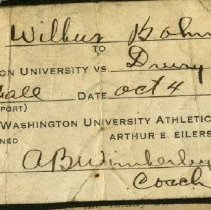 Wilbur Kohn
TO
ON UNIVERSITY VS Drury
all DATE Oct 4
PORT)
WASHINGTON UNIVERSITY ATHLETIC
NED ARTHUR E. EILERS
A B Wimberly
Coach